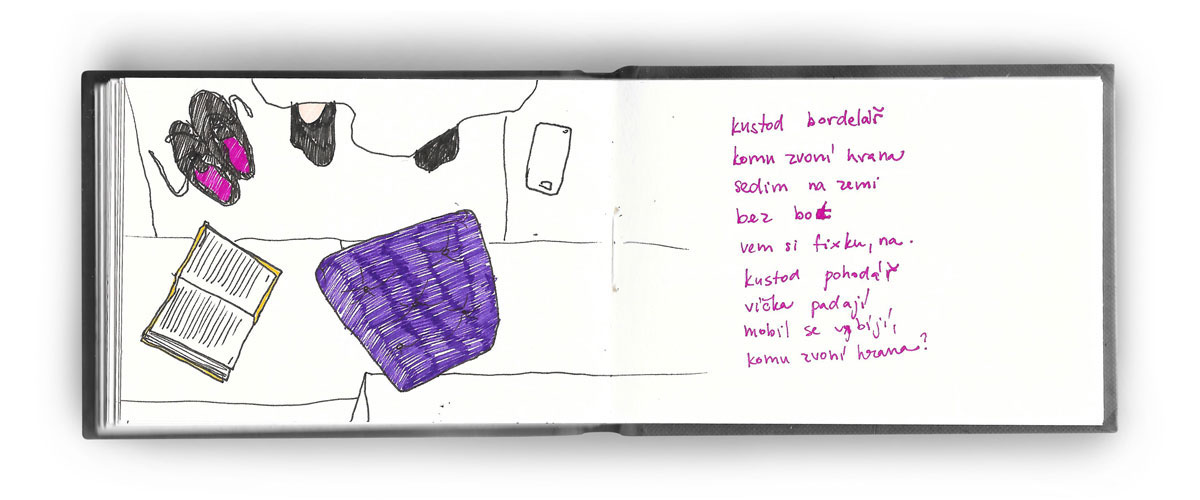 kustod bordelář
komu zvoní hrana
sedím na zemi
bez bot
vem si fixku, na.
kustod pohodář
víčka padají
mobil se vybíjí,
komu zvoní hrana?